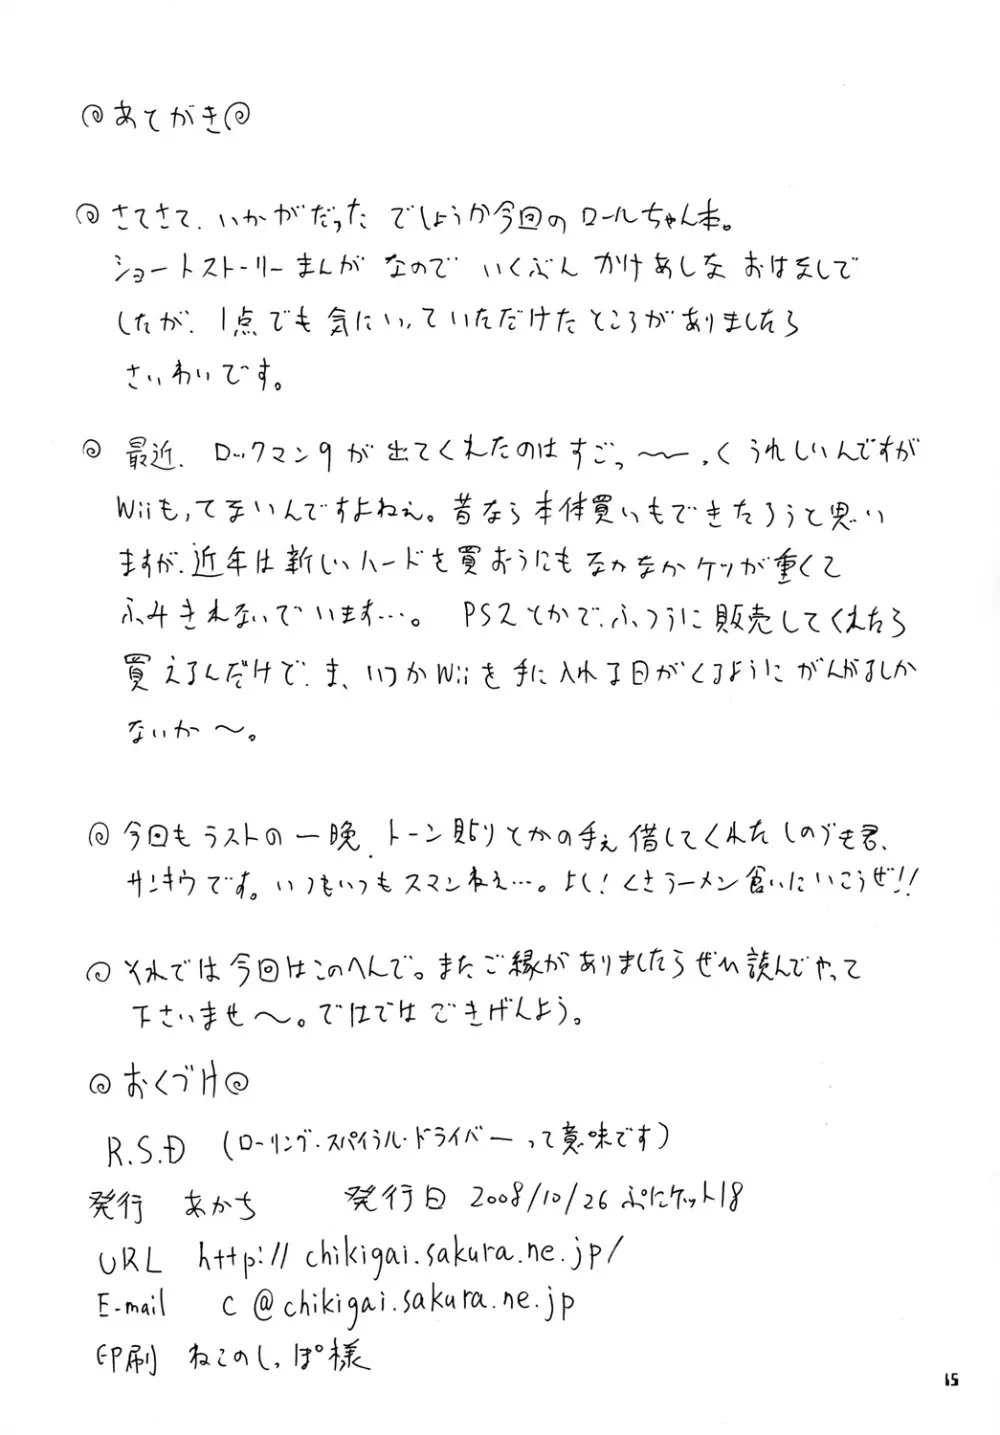 あとがき
さてさて、いかがだったでしょうか今回のロールちゃん本。
ショートストーリーまんがなのでいくぶんかけあしなおはなしで
したが、1点でも気にいっていただけたところがありましたら
さいわいです。
最近、ロックマン9が出てくれたのはすごっ〜〜っくうれしいんですが
Wiiもってないんですよねぇ。昔なら本体買いもできたろうと思い
ますが、近年は新しいハードを買おうにもなかなかケツが重くて
ふみきれないでいます…。 PS2とかでふつうに販売してくれたら
買えるんだけで、ま、いつかWiiを手に入れる日がくるようにがんばるしか
ないか〜。
今回もラストの一晩、トーン貼りとかの手ぇ借してくれたしのづき君、
サンキウです。いつもいつもスマンねぇ…。よし！くさラーメン食いにいこうぜ!!
それでは今回はこのへんで。またご縁がありましたらぜひ読んでやって
下さいませ〜。ではではごきげんよう。
おくづけ
R.S.D （ローリング・スパイラル・ドライバーって意味です）
発行 あかち 発行日 2008/10/26 ぷにケット18
URL http://chikigai.sakura.ne.jp/
E-mail c@chikigai.sakura.ne.jp
印刷 ねこのしっぽ様
15